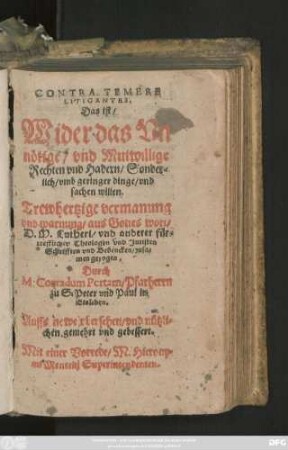 CONTRA TEMERE
LITIGANTES,
Das ist/
Wider das Vn
nötige/ vnd Mutwillige
Rechten vnd Hadern/ Sonder-
lich/ vmb geringer dinge/ vnd
sachen willen.
Trewhertzige vermanung
vnd warnung/ aus Gottes wort/
D. M. Lutheri/ vnd anderer für-
trefflicher Theologen vnd Juristen
Schrifften vnd Bedencken/ zusa-
men gezogen,
Durch
M: Conradum Portam/ Pfarherrn
zu S. Peter vnd Paul in
Eisleben.
Auffs newe vbersehen/ vnd nützli-
chen gemehrt vnd gebessert.
Mit einer Vorrede/ M. Hierony-
mi Mencelij Superintendenten.